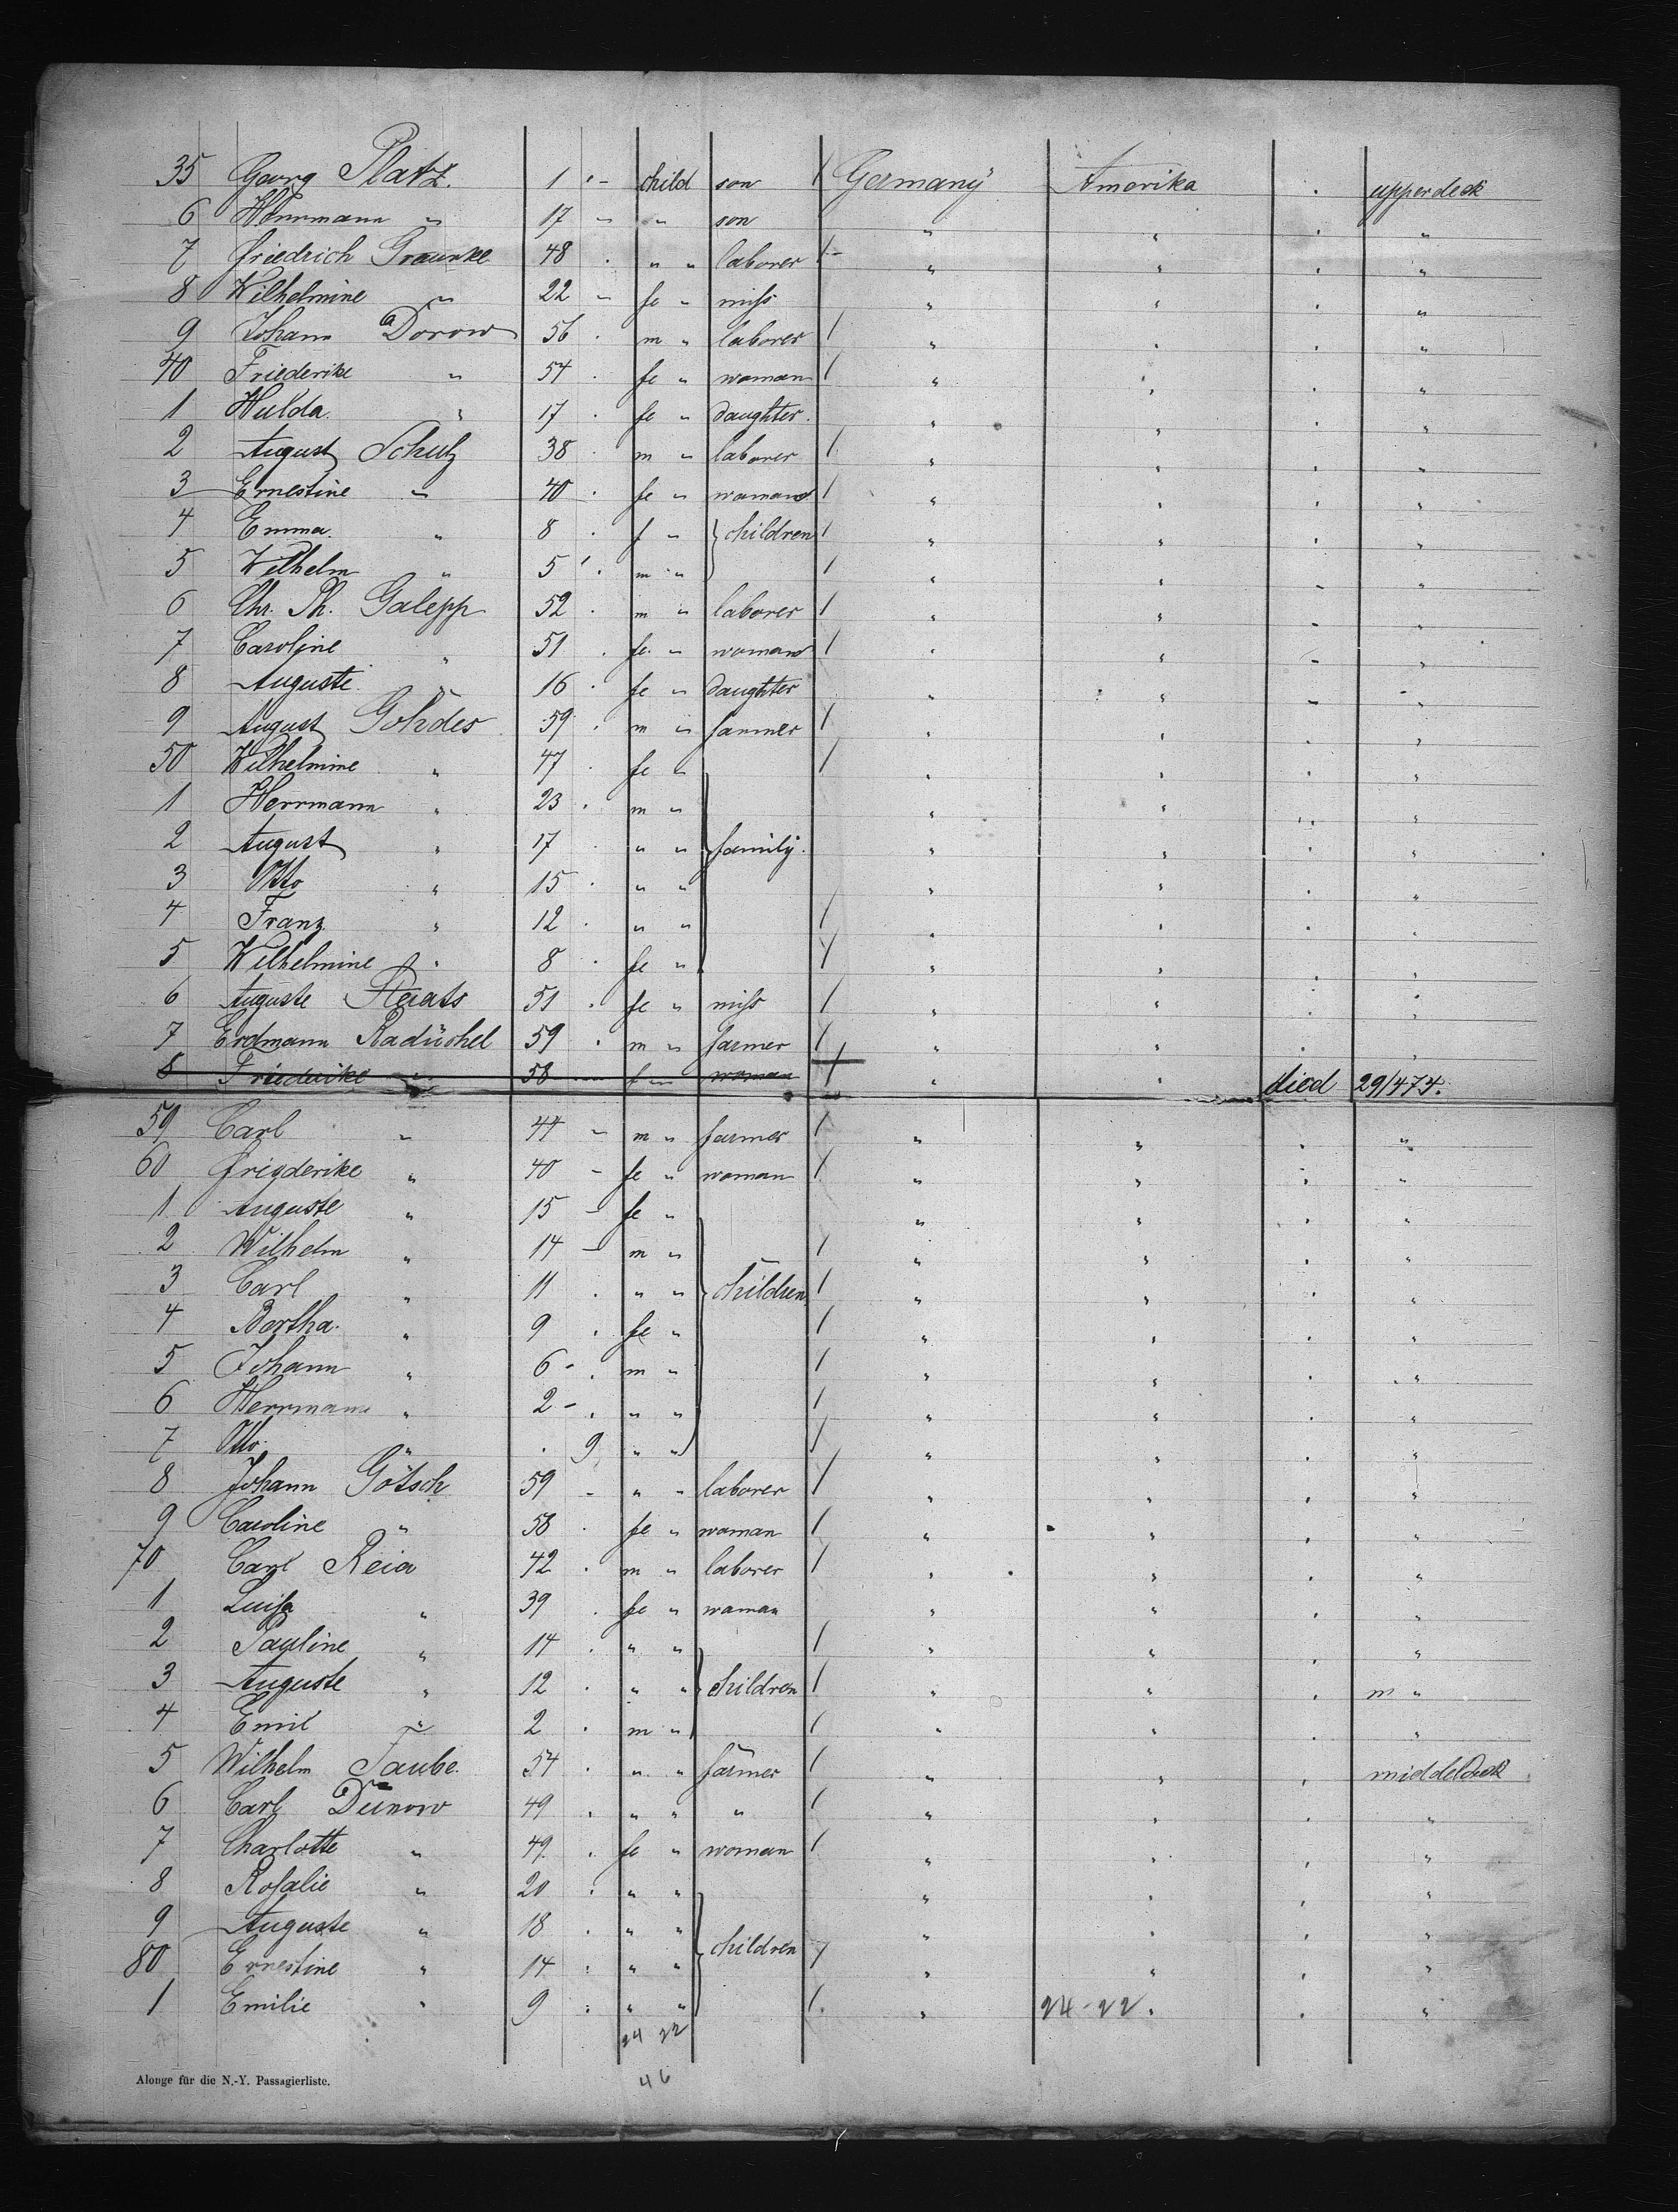 35 Georg Platz. 1 - child son Germany Amerika . upperdeck
6 Herrmann " 17 - " son " " . "
7 Friedrich Graunke 48 . " " laborer " " . "
8 Wilhelmine " 22 - fe " miss " " . "
9 Johann Dorow 56 . m " laborer " " . "
40 Friederike " 54 . fe " woman " " . "
1 Hulda. " 17 . fe " daughter. " " . "
2 August Schulz 38 . m " laborer " " . "
3 Ernestine " 40 . fe " woman " " . "
4 Emma. " 8 . f " } children " " . "
5 Wilhelm " 5 . m " " " - "
6 Chr. Ph. Galepp 52 . m " laborer " " - "
7 Caroline " 51 . fe. " woman " " - "
8 Auguste. " 16 . fe " daughter " " - "
9 August Gohdes 59 . m " farmer " " . "
50 Wilhelmine " 47 . fe " " " . "
1 Herrmann " 23 . m " " " . "
2 August " 17 . " " } family. " " . "
3 Otto " 15 . " " " " . "
4 Franz " 12 . " " " " . "
5 Wilhelmine " 8 . fe " " " . "
6 Auguste Staats 51 . fe " miss " " . "
7 Erdmann Radüchel 59 . m " farmer " " . "
8 Friederike " 58 f " woman " " died 29/4 74.
59 Carl " 44 - m " farmer " " . "
60 Friederike " 40 - fe " woman " " . "
1 Auguste " 15 - fe " " " . "
2 Wilhelm " 14 - m " " " . "
3 Carl " 11 . " " } children " " . "
4 Bertha. " 9 . fe " " " . "
5 Johann " 6 - . m " " " . "
6 Herrmann " 2 - . " " " " . "
7 Otto. " . 9 " " " " . "
8 Johann Götsch 59 - " " laborer " " . "
9 Caroline " 58 . fe " woman " " . "
70 Carl Reia 42 . m " laborer " " . "
1 Luise " 39 . fe " woman " " . "
2 Pauline " 14 . " " " " . "
3 Auguste " 12 . " " } children " " . m "
4 Emil " 2 . m " " " . "
5 Wilhelm Taube. 54 . " " farmer " " . middeldeck
6 Carl Dunow 49 . " " " " " . "
7 Charlotte " 49. . fe " woman " " . "
8 Rosalie " 20 . " " " " . "
9 Auguste " 18 . " " } children " " . "
80 Ernestine " 14 . " " " " . "
1 Emilie " 9 . " " " 24-22. . "
24 22
46
Alonge für die N.-Y. Passagierliste.